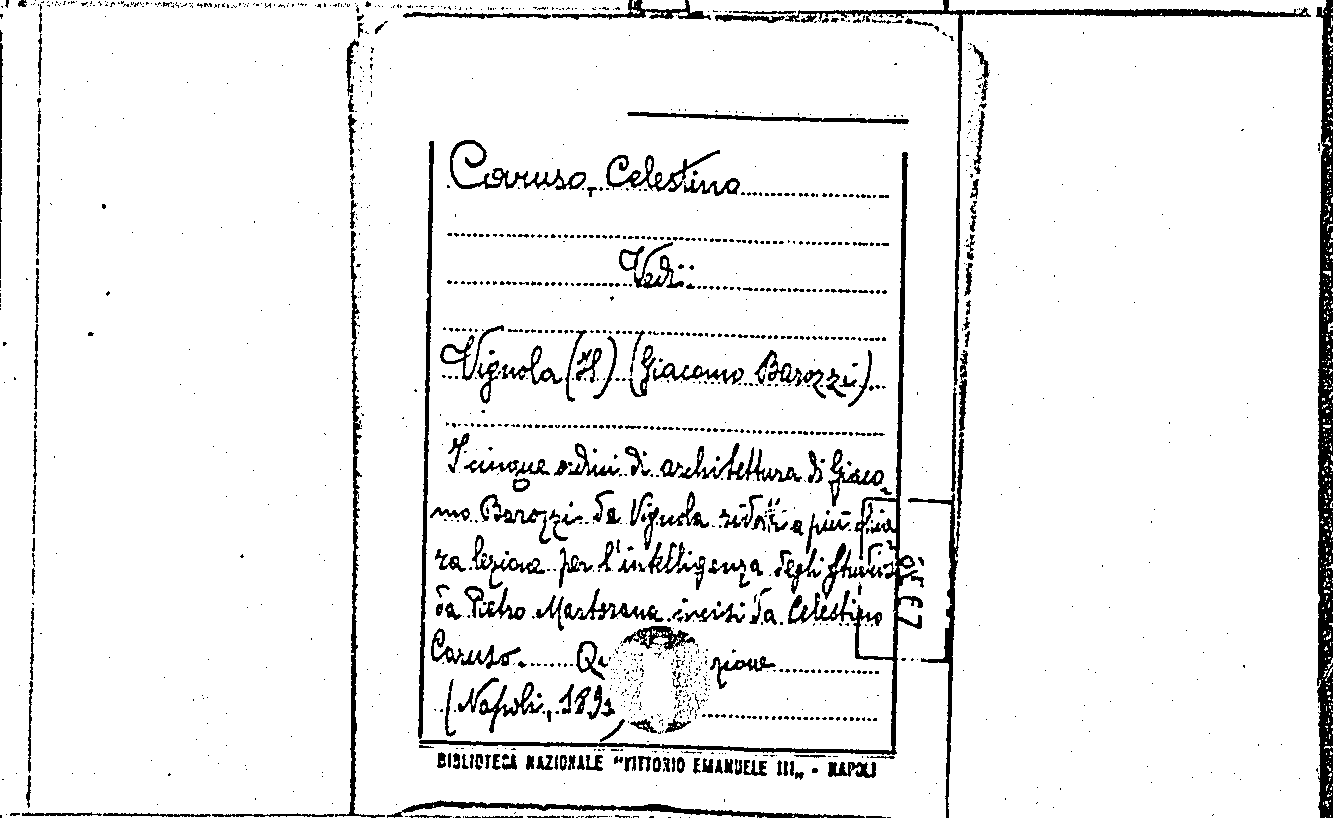 Caruso, Celestino
Vedi:
Vignola (Il) (Giacomo Barozzi)
I cinque ordini di architettura di Giaco-
mo Barozzi da Vignola ridotti a più chia
ra lezione per l'intelligenza degli studiosi
da Pietro Martorana incisi da Celestino
Caruso. zione
(Napoli, 189
BIBLIOTECA NAZIONALE "VITTORIO EMANUELE III„ - NAPOLI